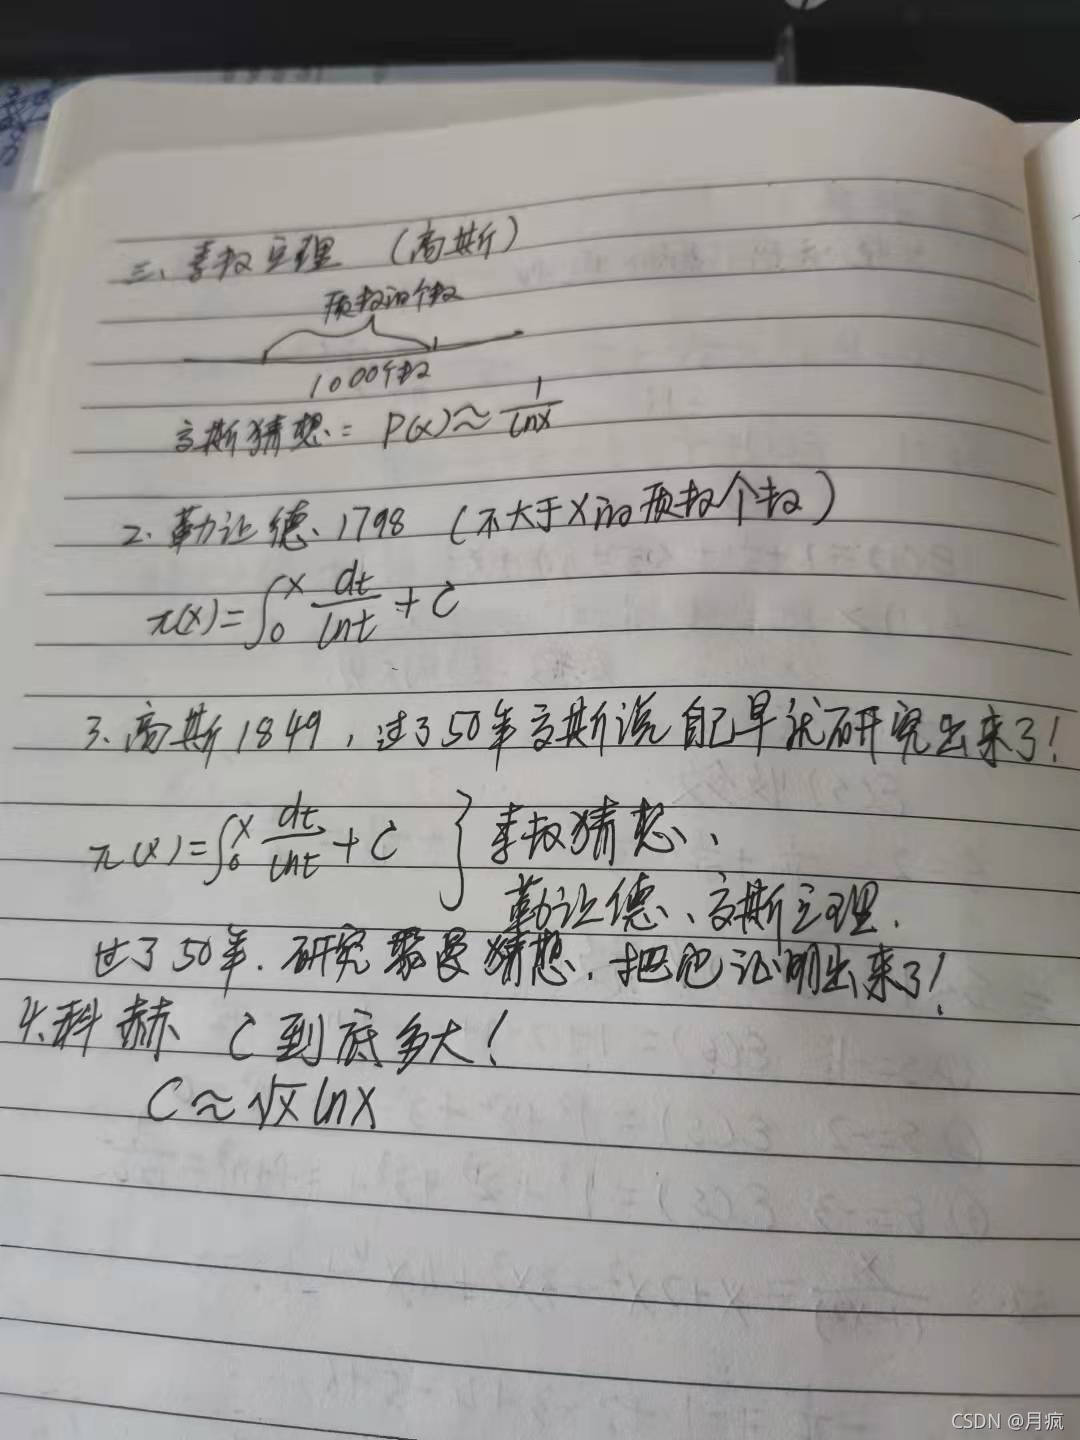 三、素数定理 (高斯)
质数的个数
1000个数
高斯猜想: P(x)≈1/lnx
2. 勒让德、1798 (不大于X的质数个数)
π(x)=∫₀ˣ dt/lnt + C
3、高斯1849,过了50年高斯说自己早就研究出来了!
π(x)=∫₀ˣ dt/lnt + C } 素数猜想、
勒让德、高斯定理.
过了50年.研究黎曼猜想.把他证明出来了!
4、科赫 C到底多大!
C≈√x lnx
CSDN @月疯